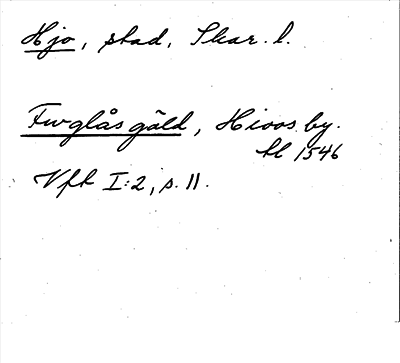 Hjo, stad, Skar. l.
Fwglås gäld, Hioos by.
tl 1546
Vft I:2, s. 11.